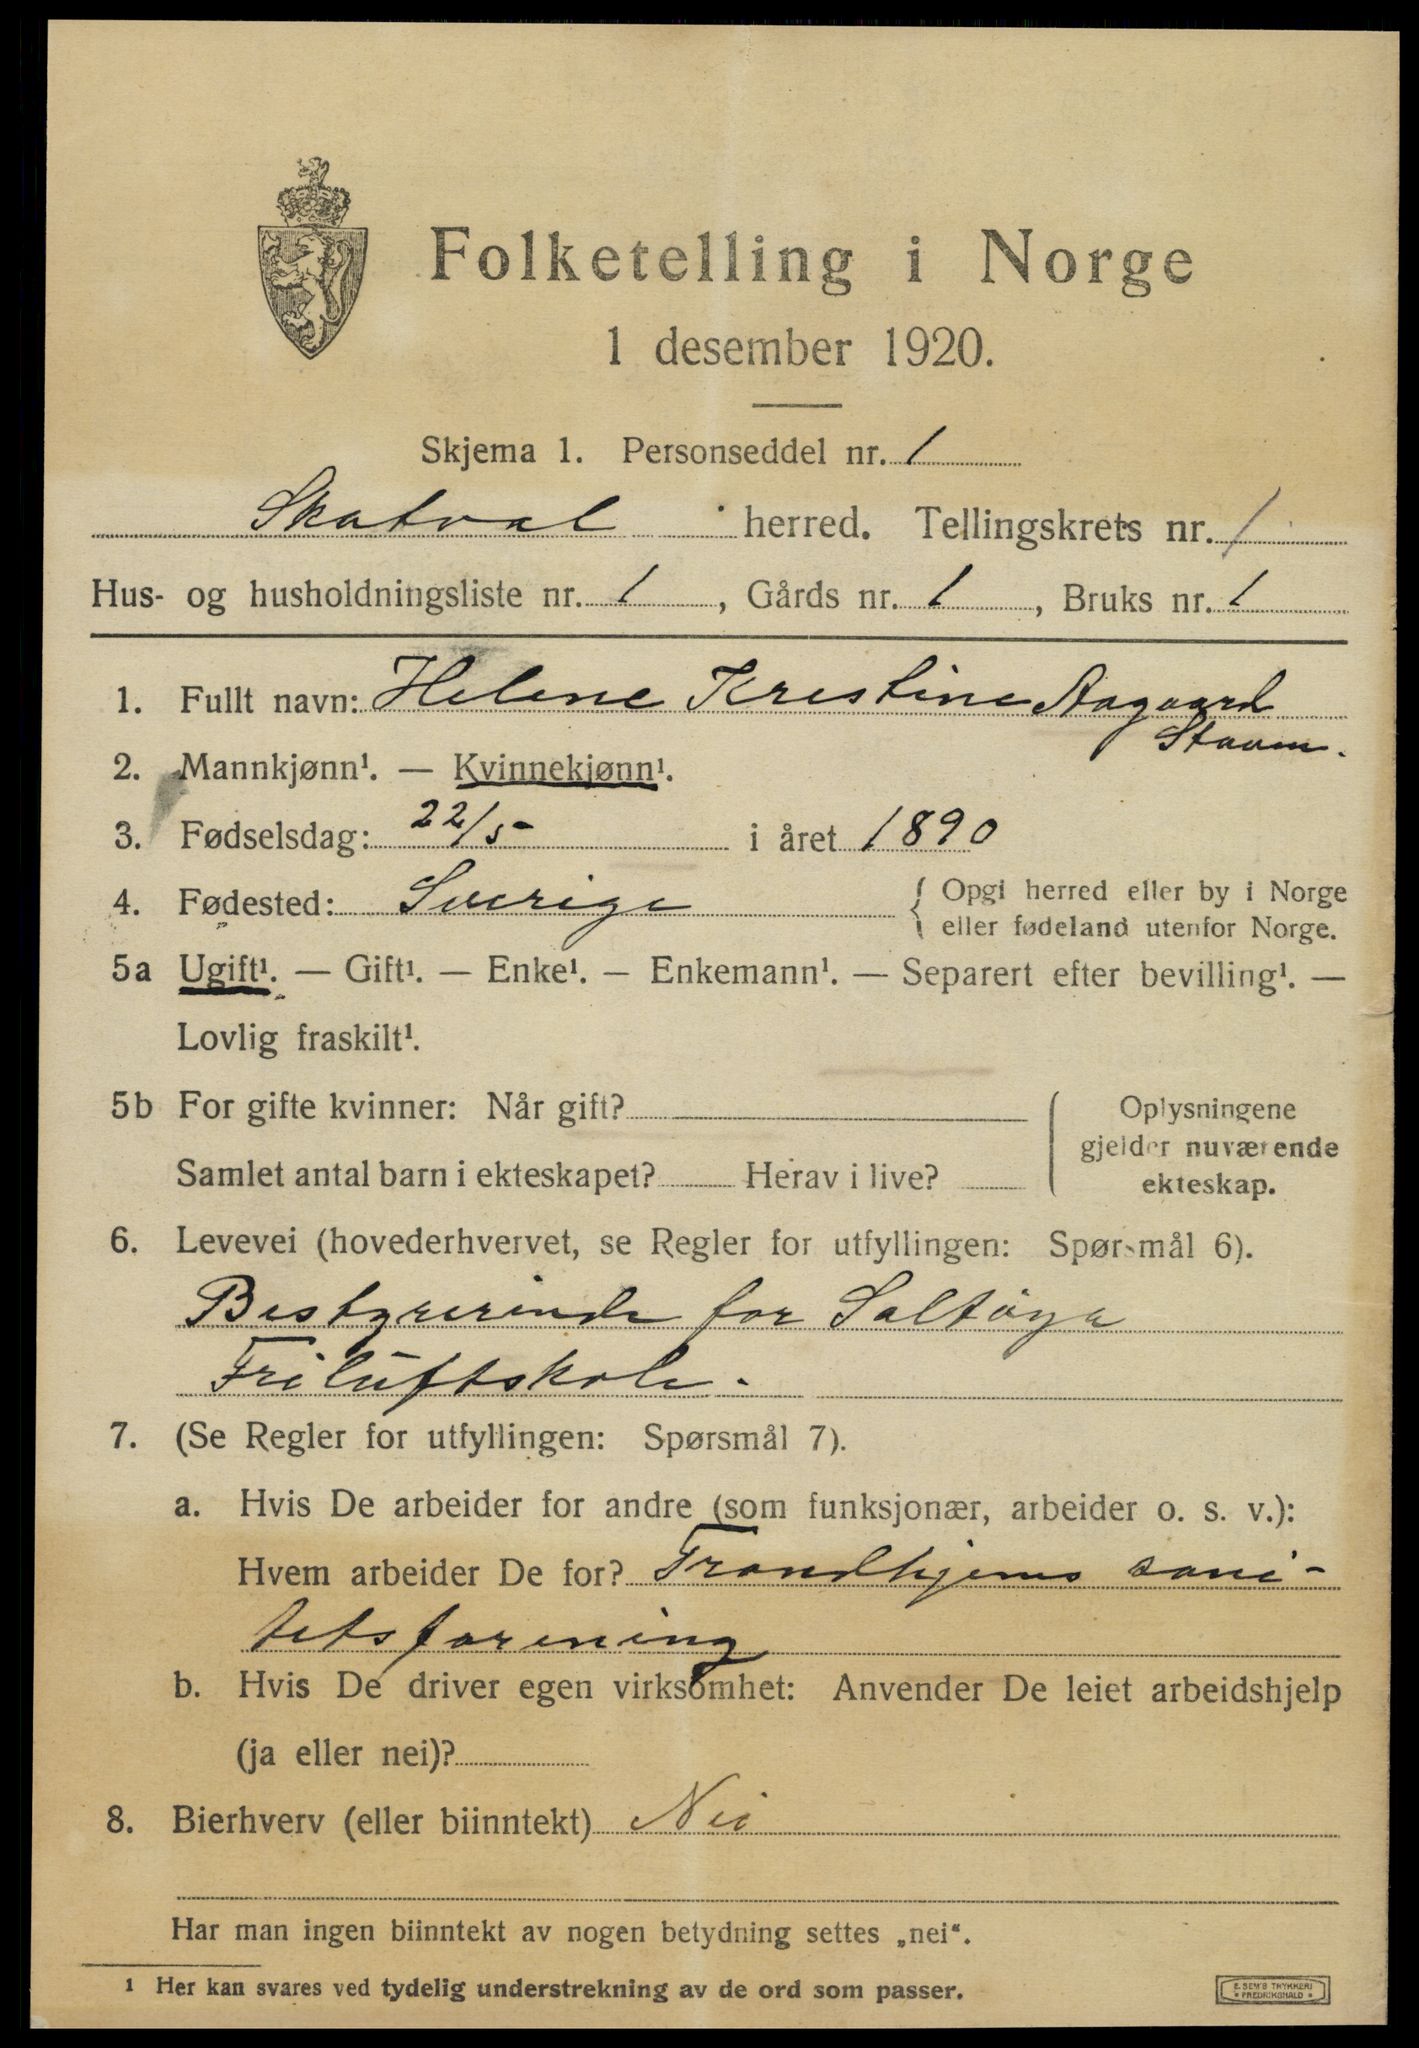 Folketelling i Norge
1 desember 1920.
Skjema 1. Personseddel nr. 1
Skatval herred. Tellingskrets nr. 1
Hus- og husholdningsliste nr. 1, Gårds nr. 1, Bruks nr. 1
1. Fullt navn: Helene Kristine Aagaard
Staum.
2. Mannkjønn¹. — Kvinnekjønn¹.
3. Fødselsdag: 22/5- i året 1890
4. Fødested: Sverige { Opgi herred eller by i Norge
eller fødeland utenfor Norge.
5a Ugift¹. — Gift¹. — Enke¹. — Enkemann¹. — Separert efter bevilling¹. —
Lovlig fraskilt¹.
5b For gifte kvinner: Når gift? Oplysningene
gjelder nuværende
Samlet antal barn i ekteskapet? Herav i live? ekteskap.
6. Levevei (hovederhvervet, se Regler for utfyllingen: Spørsmål 6).
Bestyrerinde for Saltøya
Friluftskole.
7. (Se Regler for utfyllingen: Spørsmål 7).
a. Hvis De arbeider for andre (som funksjonær, arbeider o. s. v.):
Hvem arbeider De for? Trondhjems sani-
tetsforening
b. Hvis De driver egen virksomhet: Anvender De leiet arbeidshjelp
(ja eller nei)?
8. Bierhverv (eller biinntekt) Nei
Har man ingen biinntekt av nogen betydning settes „nei“.
1 Her kan svares ved tydelig understrekning av de ord som passer.
E. SEM'S TRYKKERI
• FREDRIKSHALD •